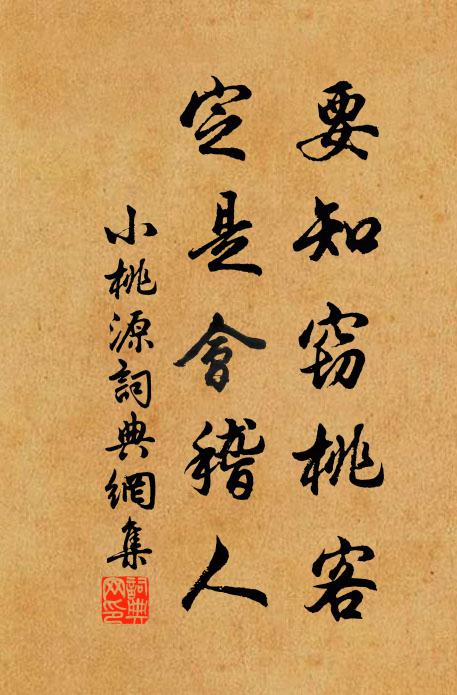 要知窃桃客
定是會稽人
小桃源詞典網集
詞典网印